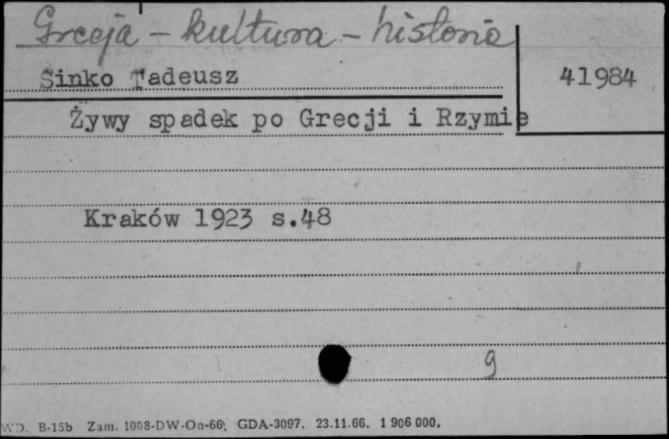 Grecja – kultura – historia
Sinko Tadeusz
41984
Żywy spadek po Grecji i Rzymie
Kraków 1923 s.48
9
WD. B-15b Zam. 1008-DW-On-66. GDA-3097. 23.11.66. 1 906 000.